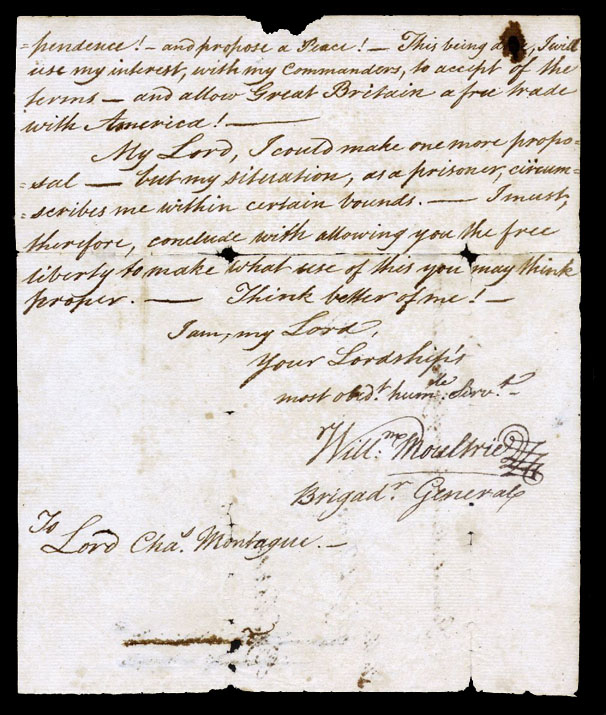 =pendence! - and propose a Peace! - This being done, I will
use my interest, with my Commanders, to accept of the
terms - and allow Great Britain a free trade
with America! -
My Lord, I could make one more propo=
=sal - but my situation, as a prisoner, circum=
=scribes me within certain bounds. - I must,
therefore, conclude with allowing you the free
liberty to make what use of this you may think
proper. - Think better of me! -
I am, my Lord,
Your Lordship's
most obedt. humle. Servt. -
Willm. Moultrie
Brigadr. General
To
Lord Chas. Montague. -